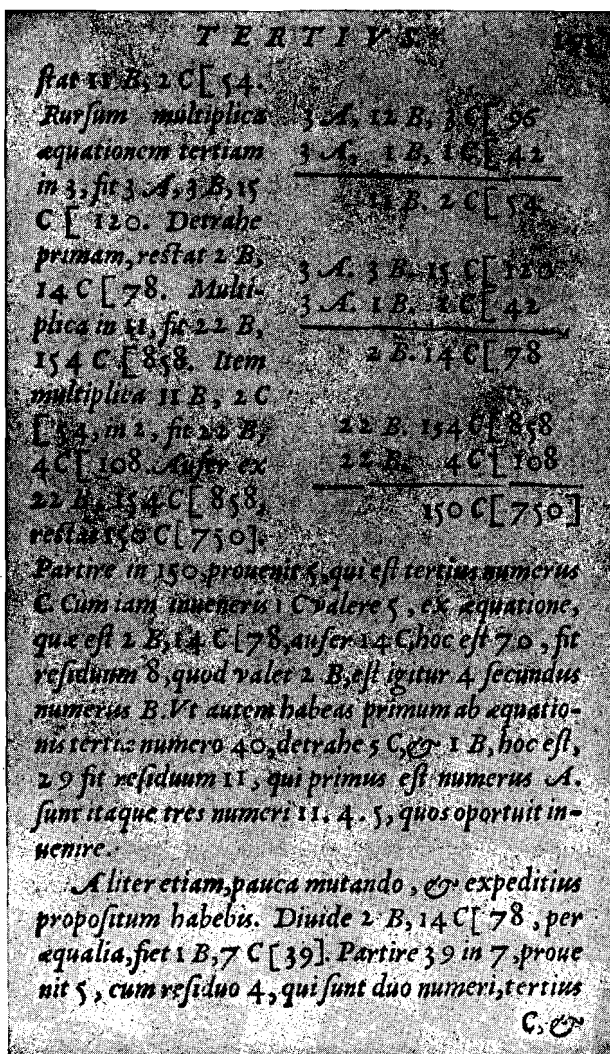 TERTIVS.
ſtat 11 B, 2 C [ 54.
Rurſum multiplica
æquationem tertiam
in 3, fit 3 A, 3 B, 15
C [ 120. Detrahe
primam, reſtat 2 B,
14 C [ 78. Multi-
plica in 11, fit 22 B,
154 C [ 858. Item
multiplica 11 B, 2 C
[ 54, in 2, fit 22 B,
4 C [ 108. Aufer ex
22 B, 154 C [ 858,
reſtat 150 C [ 750].
3 A, 12 B, 3 C [ 96
3 A, 1 B, 1 C [ 42
11 B. 2 C [ 54
3 A. 3 B. 15 C [ 120
3 A. 1 B. 1 C [ 42
2 B. 14 C [ 78
22 B. 154 C [ 858
22 B. 4 C [ 108
150 C [ 750 ]
Partire in 150, prouenit 5, qui eſt tertius numerus
C. Cum iam inueneris 1 C valere 5, ex æquatione,
quæ eſt 2 B, 14 C [ 78, aufer 14 C, hoc eſt 70, fit
reſiduum 8, quod valet 2 B, eſt igitur 4 ſecundus
numerus B. Vt autem habeas primum ab æquatio-
nis tertiæ numero 40, detrahe 5 C, & 1 B, hoc eſt,
29 fit reſiduum 11, qui primus eſt numerus A.
ſunt itaque tres numeri 11. 4. 5, quos oportuit in-
uenire.
Aliter etiam, pauca mutando, & expeditius
propoſitum habebis. Diuide 2 B, 14 C [ 78, per
æqualia, fiet 1 B, 7 C [39]. Partire 39 in 7, proue
nit 5, cum reſiduo 4, qui ſunt duo numeri, tertius
C, &